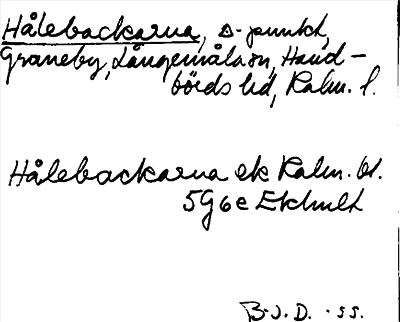 Hålebackarna, △-punkt,
Graneby, Långemåla sn, Hand-
börds hd, Kalm. l.
Hålebackarna ek Kalm. bl.
5G6e Ekhult
B. J. D. · ss.